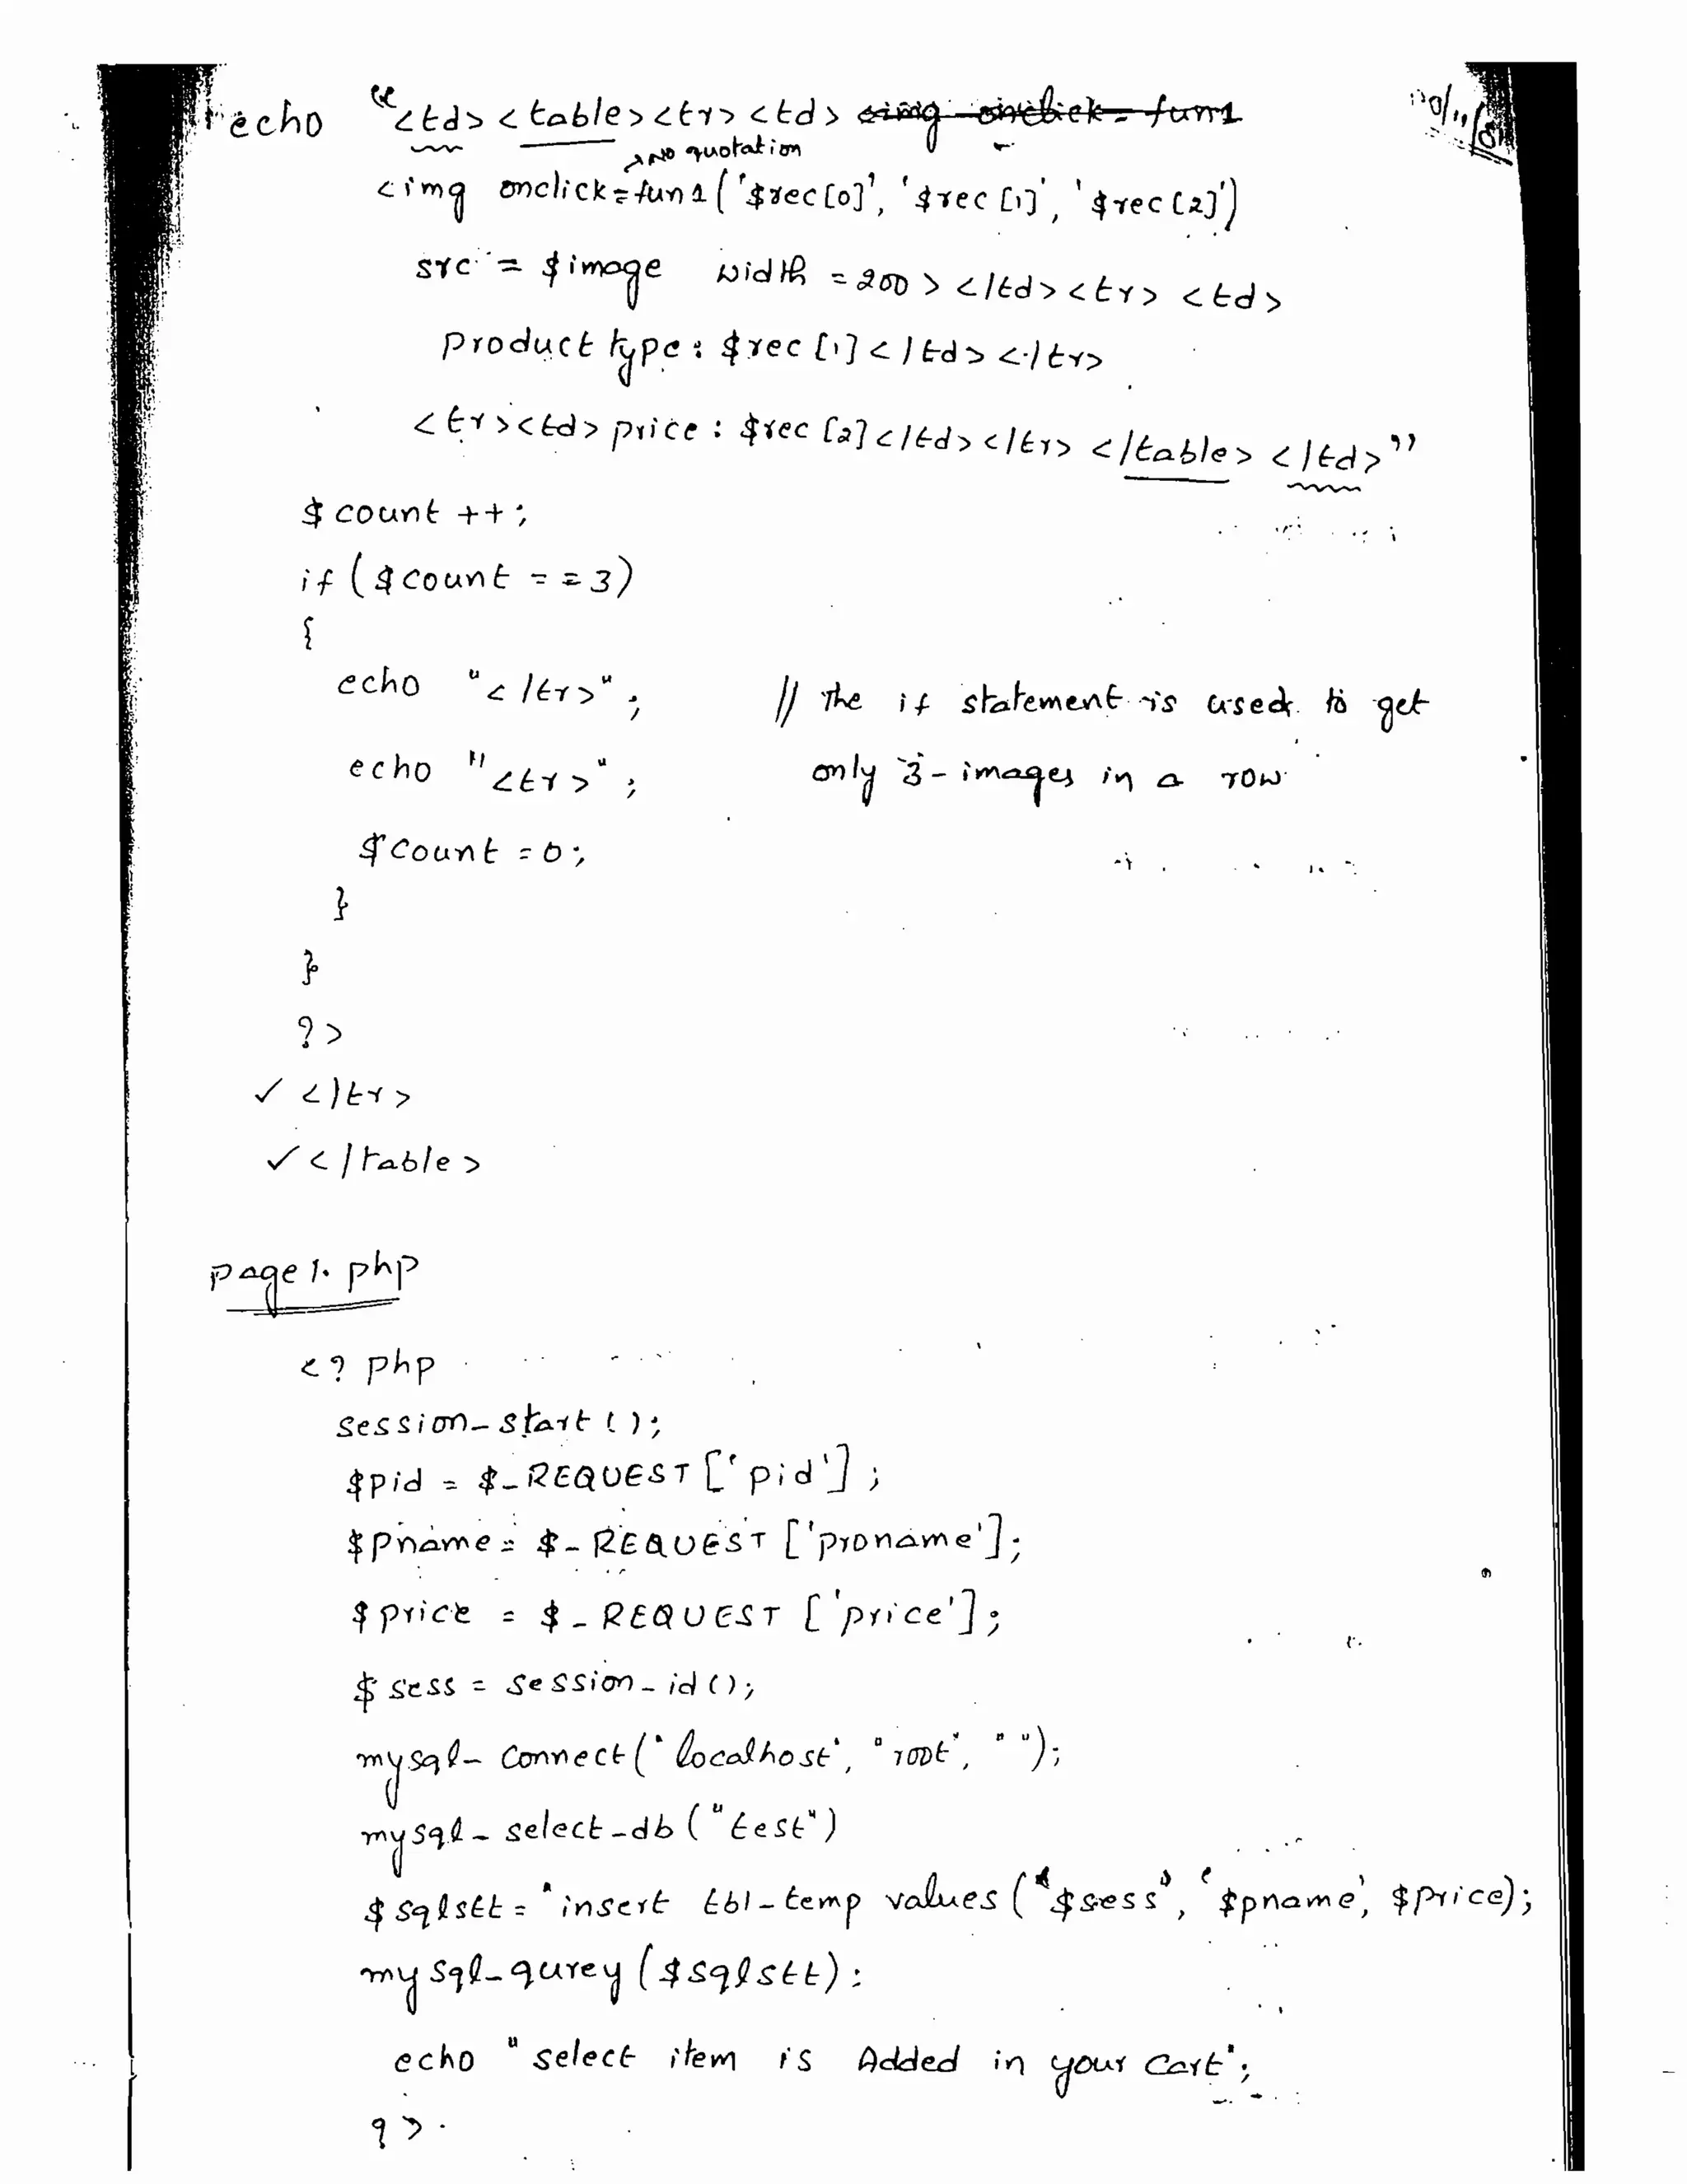 echo "<td> <table><tr> <td> <img onclick = fun1
NO quotation
<img onclick=fun1('$rec[0]', '$rec[1]', '$rec[2]')
src = $image width = 200 > </td> <tr> <td>
product type : $rec[1] </td> </tr>
<tr><td> price : $rec[2] </td> </tr> </table> </td>"
$count ++;
if ($count == 3)
{
echo "</tr>"; // The if statement is used to get
echo "<tr>"; only 3-images in a row
$count = 0;
}
}
?>
✓ </tr>
✓ </table>
page1.php
<? php
session_start ();
$pid = $_REQUEST ['pid'] ;
$pname = $_REQUEST ['proname'];
$price = $_REQUEST ['price'];
$sess = session_id ();
mysql_connect ("localhost", "root", " ");
mysql_select_db ("test")
$sqlstt = "insert tbl_temp values ('$sess', '$pname', $price);
mysql_qurey ($sqlstt) :
echo "select item is Added in your cart";
?>